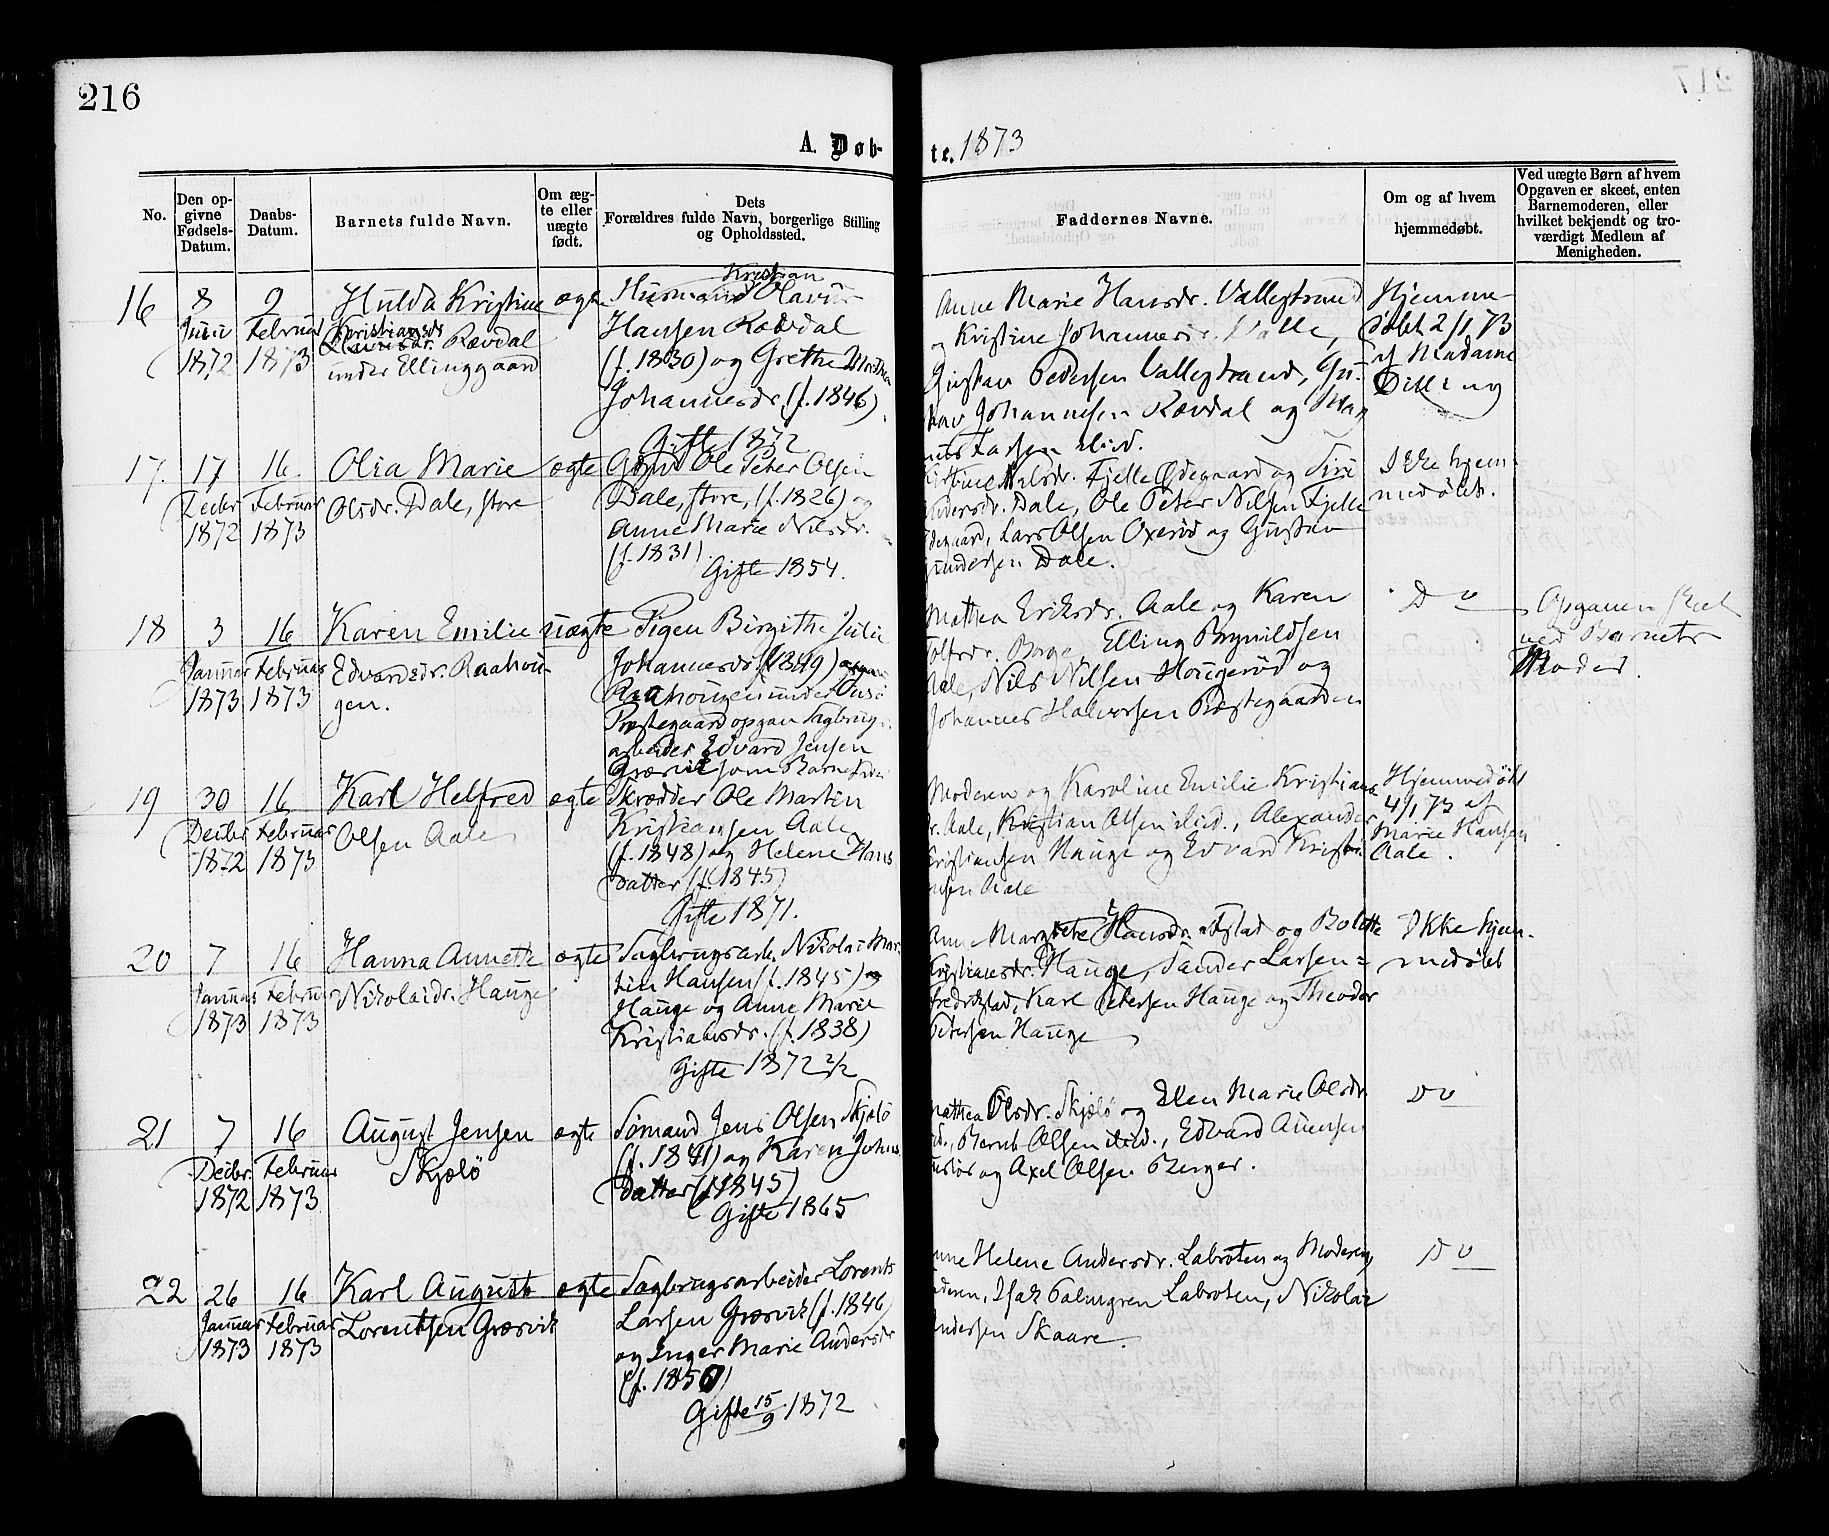 216
217
A. Døb-
te. 1873
No.
Den op-
givne
Fødsels-
Datum.
Daabs-
Datum.
Barnets fulde Navn.
Om æg-
te eller
uægte
født.
Dets
Forældres fulde Navn, borgerlige Stilling
og Opholdssted.
Faddernes Navne.
Om og af hvem
hjemmedøbt.
Ved uægte Børn af hvem
Opgaven er skeet, enten
Barnemoderen, eller
hvilket bekjendt og tro-
værdigt Medlem af
Menigheden.
16
8
1872
9
Februar
1873
Hulda Kristine
Kristiansdr.
Rævdal
under Ellinggaard
ægte
Kristian
Husmand Olavus
Hansen Rævdal
(f. 1830) og Grethe Mathea
Johannesdr. (f. 1846)
Gifte 1872
Anne Marie Hansdr. Vallestrand
og Kristine Johannesdr. Valle,
Gustav Pedersen Vallestrand, Gu-
stav Johannesen Rævdal og Mag
nus Larsen ibid.
Hjemme-
døbt 2/1 73
af Madame
17.
17
Decbr
1872
16
Februar
1873
Olia Marie
Olsdr. Dale, store
ægte
Ole Peter Olsen
Dale, store, (f. 1826) og
Anne Marie Nilsdr.
(f. 1831)
Gifte 1854.
Nilsdr. Fjelle Ødegaard og
Andersdr. Dale, Ole Peter Nilsen Fjelle
degaard, Lars Olsen Oxerød og Gustav
Gundersen Dale.
Ikke hjem-
medøbt.
18
3
Januar
1873
16
Februar
1873
Karen Emilie
Edvardsdr. Raahou-
gen.
uægte
Pigen Birgithe Julie
Johannesdr. (f. 1849)
Raahougen under Onsø
Præstegaard opgav Sagbrugs-
arbeider Edvard Jensen
Græsvik som Barnefader
Mathea Eriksdr. Aale og Karen
Borge, Elling Brynildsen
Aale, Nils Nilsen Hougerød og
Johannes Halvorsen Præstegaarden
Do
Opgaven skeet
ved Barnets
Moder.
19
30
Decbr
1872
16
Februar
1873
Karl Helfred
Olsen Aale
ægte
Skrædder Ole Martin
Kristiansen Aale
(f. 1848) og Helene Hans
datter (f. 1845)
Gifte 1871.
Moderen og Karoline Emilie Kristians
r. Aale, Kristian Olsen ibid., Alexander
Kristiansen Hauge og Edvard Kristi
ansen Aale
Hjemmedøbt
4/1 73 af
Marie Hansen
Aale.
20
7
Januar
1873
16
Februar
1873
Hanna Annette
Nikolaidr. Hauge
ægte
Sagbrugsarb. Nikolai Mar-
tin Hansen (f. 1845)
Hauge og Anne Marie
Kristiansdr. (f. 1838)
Gifte 1872 2/2
Anne Margrete Hansdr. og Bolette
Kristiansdr. Hauge, Sander Larsen
Fredrikstad, Karl Petersen Hauge og Theodor
Petersen Hauge
Ikke hjem-
medøbt
21
7
Decbr.
1872
16
Februar
1873
August Jensen
Skjælø
ægte
Sømand Jens Olsen Skjælø
(f. 1841) og Karen Johns
datter (f. 1845)
Gifte 1865
Mathea Olsdr. Skjælø og Ellen Marie Olsdr.
ibid., Bernt Olsen ibid., Edvard
og Axel Olsen Berger.
Do
22
26
Januar
1873
16
Februar
1873
Karl August
Lorentsen Græsvik
ægte
Sagbrugsarbeider Lorents
Larsen Græsvik (f. 1846)
og Inger Marie Andersdr
(f. 1850)
Gifte 15/9 1872
Anne Helene Andersdr. Labroten og Moderen,
Faderen, Isak Palmgren Labroten, Nikolai
Andersen Skaare.
Do